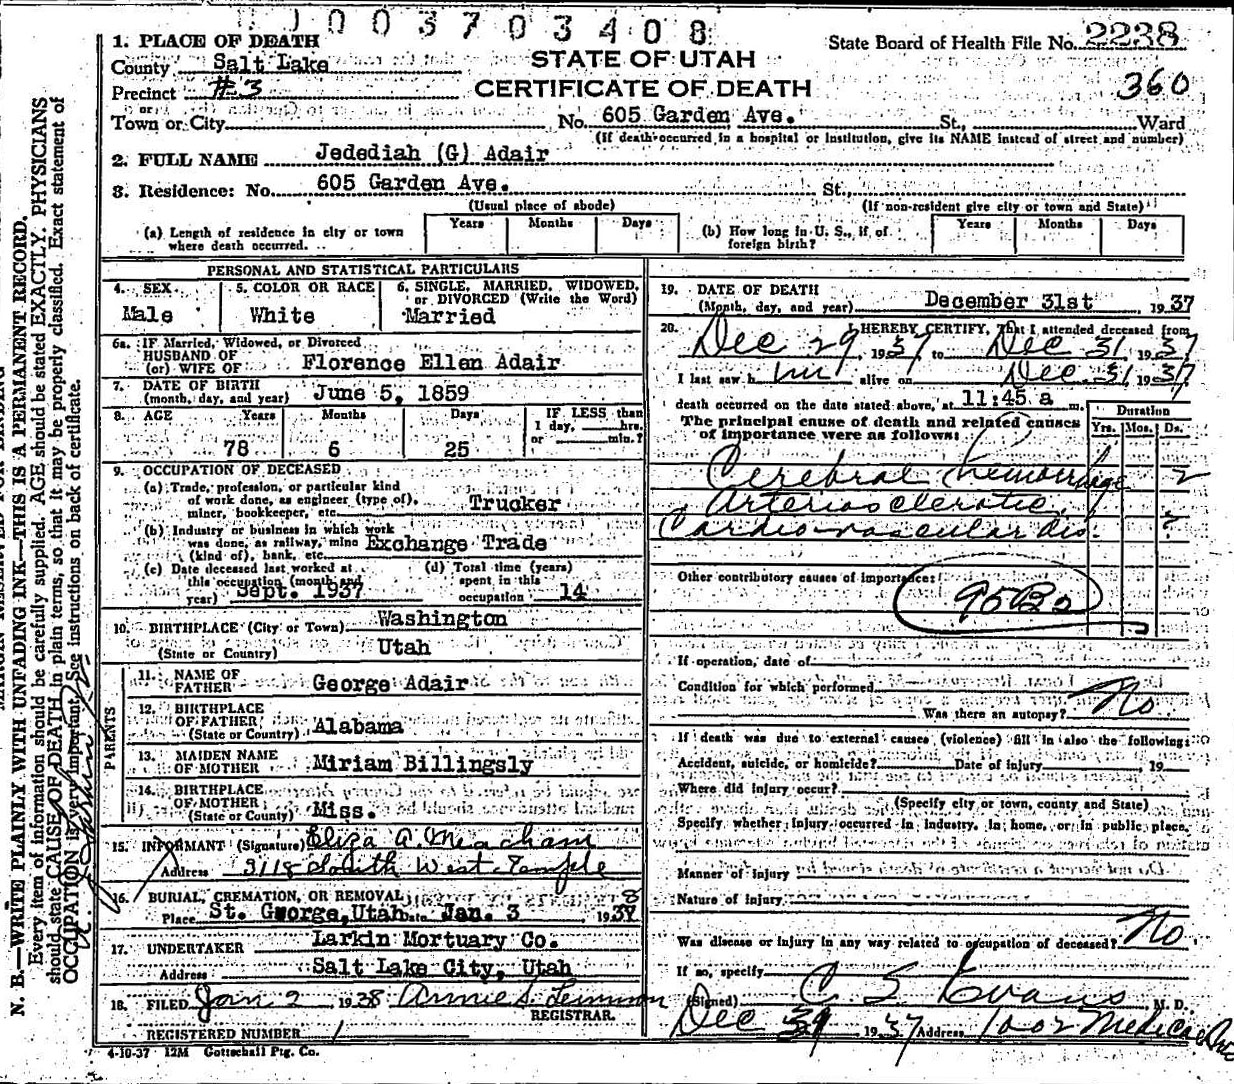 1003703408
1. PLACE OF DEATH
State Board of Health File No. 2238
County Salt Lake
STATE OF UTAH
Precinct #3
CERTIFICATE OF DEATH
360
or
Town or City No. 605 Garden Ave. St., Ward
(If death occurred in a hospital or institution, give its NAME instead of street and number)
2. FULL NAME Jedediah (G) Adair
3. Residence: No. 605 Garden Ave. St.,
(Usual place of abode) (If non-resident give city or town and State)
(a) Length of residence in city or town where death occurred. Years Months Days
(b) How long in U. S., if of foreign birth? Years Months Days
PERSONAL AND STATISTICAL PARTICULARS
4. SEX Male
5. COLOR OR RACE White
6. SINGLE, MARRIED, WIDOWED, or DIVORCED (Write the Word) Married
6a. IF Married, Widowed, or Divorced
HUSBAND OF
(or) WIFE OF Florence Ellen Adair
7. DATE OF BIRTH
(month, day, and year) June 5, 1859
8. AGE Years Months Days IF LESS than
1 day, hrs.
or min.?
78 6 25
9. OCCUPATION OF DECEASED
(a) Trade, profession, or particular kind
of work done, as engineer (type of),
miner, bookkeeper, etc. Trucker
(b) Industry or business in which work
was done, as railway, mine
(kind of), bank, etc. Exchange Trade
(c) Date deceased last worked at
this occupation (month and
year) Sept. 1937
(d) Total time (years)
spent in this
occupation 14
10. BIRTHPLACE (City or Town) Washington
(State or Country) Utah
PARENTS
11. NAME OF
FATHER George Adair
12. BIRTHPLACE
OF FATHER
(State or Country) Alabama
13. MAIDEN NAME
OF MOTHER Miriam Billingsly
14. BIRTHPLACE
OF MOTHER
(State or Country) Miss.
15. INFORMANT (Signature) Eliza A. Meacham
Address 3118 South West Temple
16. BURIAL, CREMATION, OR REMOVAL
Place St. George, Utah Date Jan. 3 1938
17. UNDERTAKER Larkin Mortuary Co.
Address Salt Lake City, Utah
18. FILED Jan 2, 1938 Annie S. Lemmon
REGISTRAR.
REGISTERED NUMBER 1
4-10-37 12M Gottschall Ptg. Co.
19. DATE OF DEATH
(Month, day, and year) December 31st, 1937
20. I HEREBY CERTIFY, That I attended deceased from
Dec 29, 1937, to Dec 31, 1937
I last saw him alive on Dec. 31, 1937
death occurred on the date stated above, at 11:45 a m.
The principal cause of death and related causes
of importance were as follows:
Duration
Yrs. Mos. Ds.
Cerebral hemorrhage 2
Arteriosclerotic
Cardio-vascular dis. ?
Other contributory causes of importance:
If operation, date of
Condition for which performed
Was there an autopsy? No.
If death was due to external causes (violence) fill in also the following:
Accident, suicide, or homicide? Date of injury , 19
Where did injury occur?
(Specify city or town, county and State)
Specify whether injury occurred in industry, in home, or in public place.
Manner of injury
Nature of injury
Was disease or injury in any way related to occupation of deceased? No
If so, specify
(Signed) C S Evans, M. D.
Dec 31, 1937 Address 1002 Medical Arts
N. B.—WRITE PLAINLY WITH UNFADING INK—THIS IS A PERMANENT RECORD.
Every item of information should be carefully supplied. AGE should be stated EXACTLY. PHYSICIANS
should state CAUSE OF DEATH in plain terms, so that it may be properly classified. Exact statement of
OCCUPATION is very important. See instructions on back of certificate.